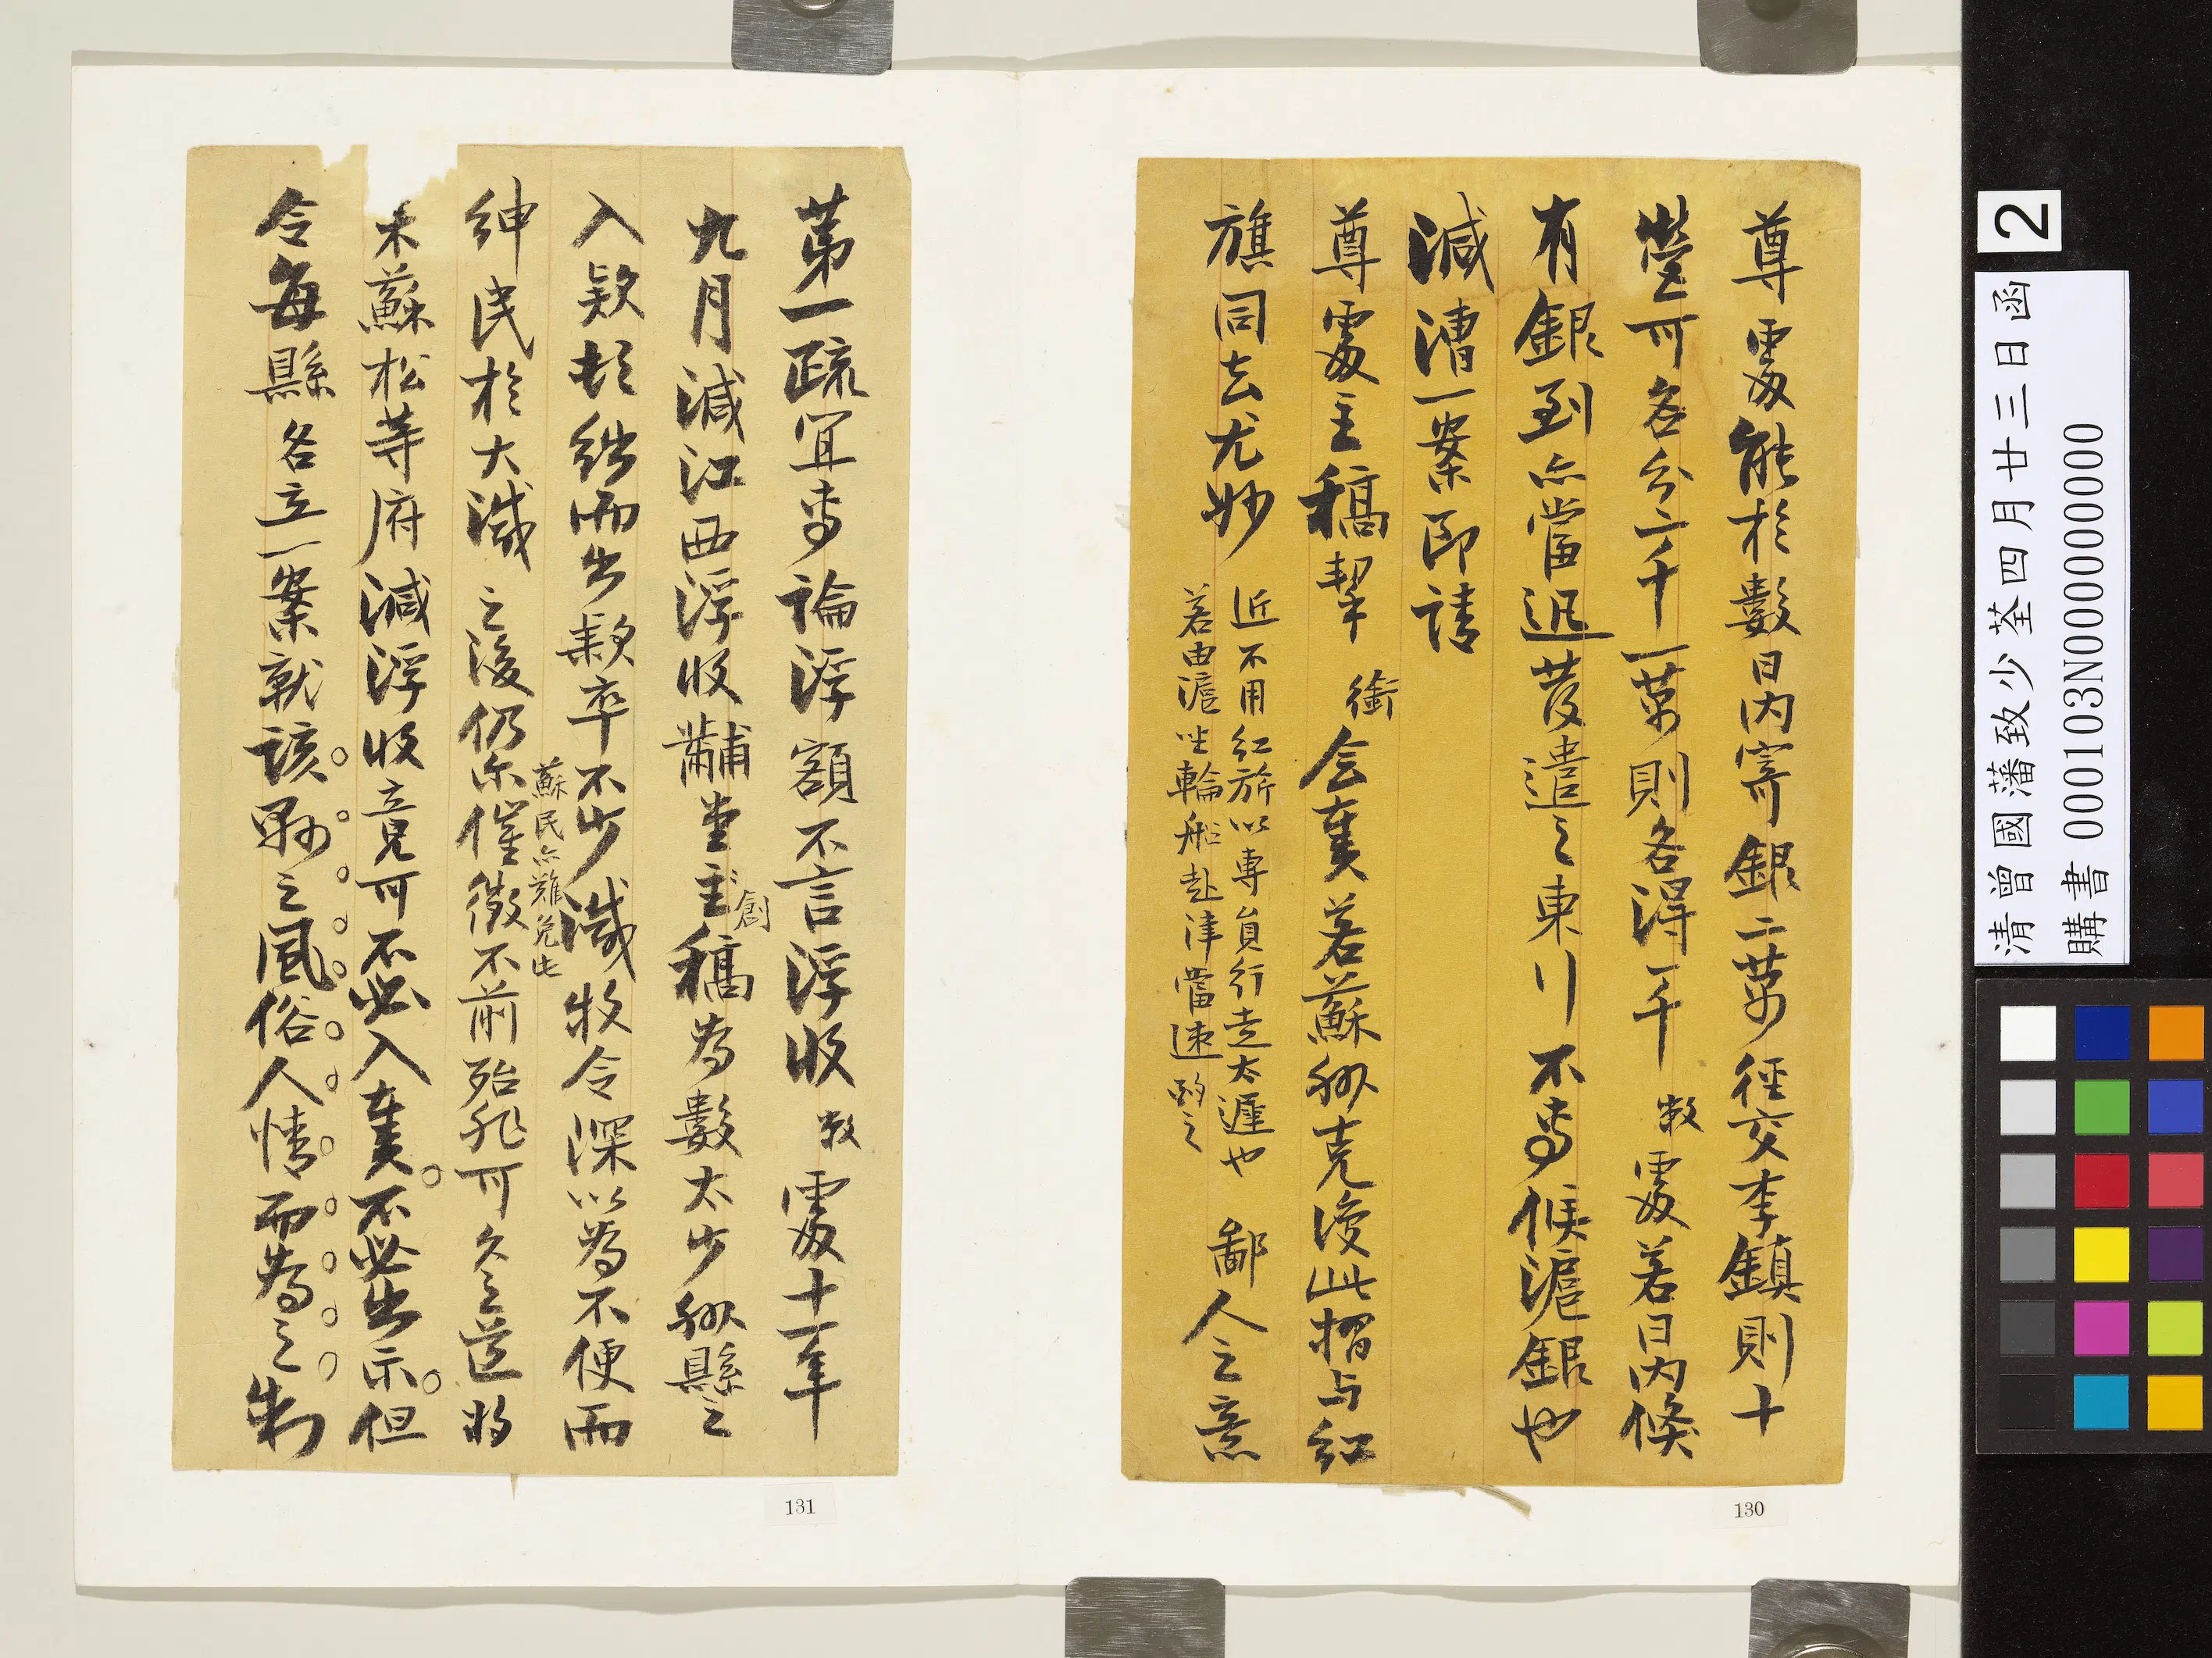 尊處能於數日內寄銀二萬徑交李鎮則十
營可各分二千一萬則各得一千敝處若日內候
有銀到亦當迅發遣之東川不專候滬銀也
減漕一案即請
尊處主稿挈銜會奏若蘇州克後此摺与紅
旗同去尤妙
近不用紅旂以專員行走太遲也
若由滬坐輪船赴津當速
鄙人之意
130
第一疏宜專論浮額不言浮收敝處十一年
九月減江西浮收黼堂主稿為數太少州縣之
創
入款頓絀而出款卒不少減牧令深以為不便而
紳民於大減之後仍尔催徵不前殆非可久之道将
蘇民亦難免此
来蘇松等府減浮收竟可不必入奏不必出示但
令每縣各立一案就該縣之風俗人情而為之制
131
2
清曾國藩致少荃四月廿三日函
購書 000103N000000000